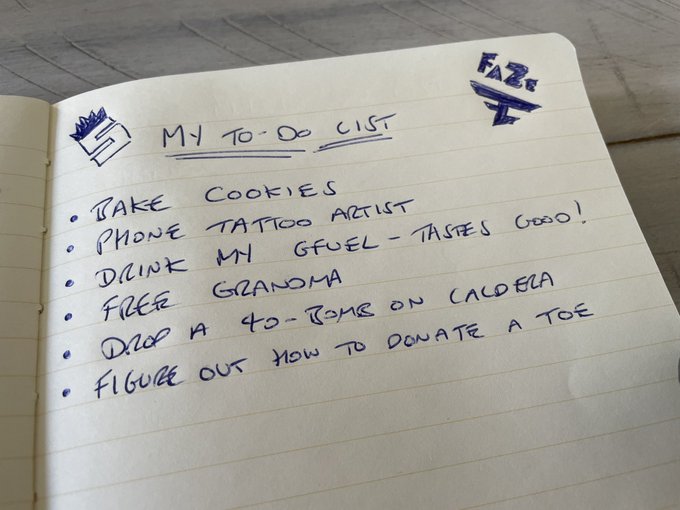 FAZE
MY TO-DO LIST
• BAKE COOKIES
• PHONE TATTOO ARTIST
• DRINK MY GFUEL - TASTES GOOD!
• FREE GRANDMA
• DROP A 40-BOMB ON CALDERA
• FIGURE OUT HOW TO DONATE A TOE